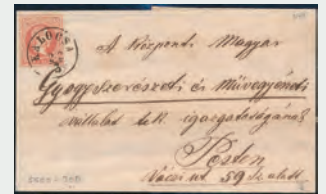 KALOCSA
A Központi Magyar
Gyógyszerészeti és Müvegyészeti
vállalat tek. igazgatóságának
Pesten
Váczi ut. 59 sz. alatt